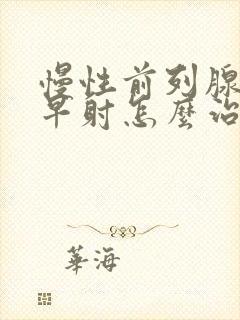 慢性前列腺
早射怎麼治
華海